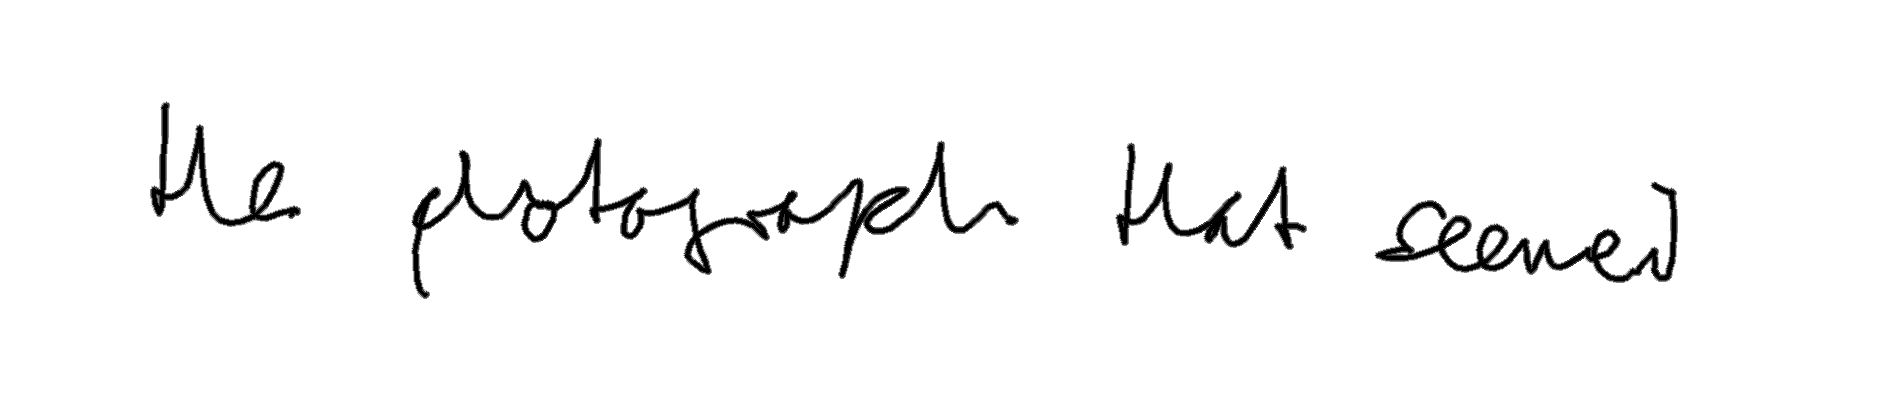 the photograph that seemed